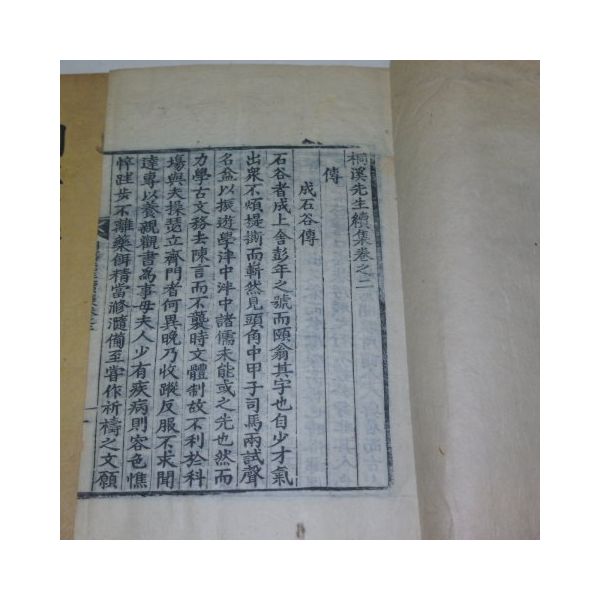 桐溪先生續集卷之二
傳
成石谷傳
石谷者成上舍彭年之號而頤翁其字也自少才氣
出衆不煩提撕而嶄然見頭角中甲子司馬兩試聲
名益以振遊學泮中泮中諸儒未能或之先也然而
力學古文務去陳言而不襲時文體制故不利於科
場與夫操瑟立齊門者何異晩乃收蹤反服不求聞
達專以養親觀書爲事母夫人少有疾病則容色憔
悴跬步不離藥餌精當滫瀡備至嘗作祈禱之文願